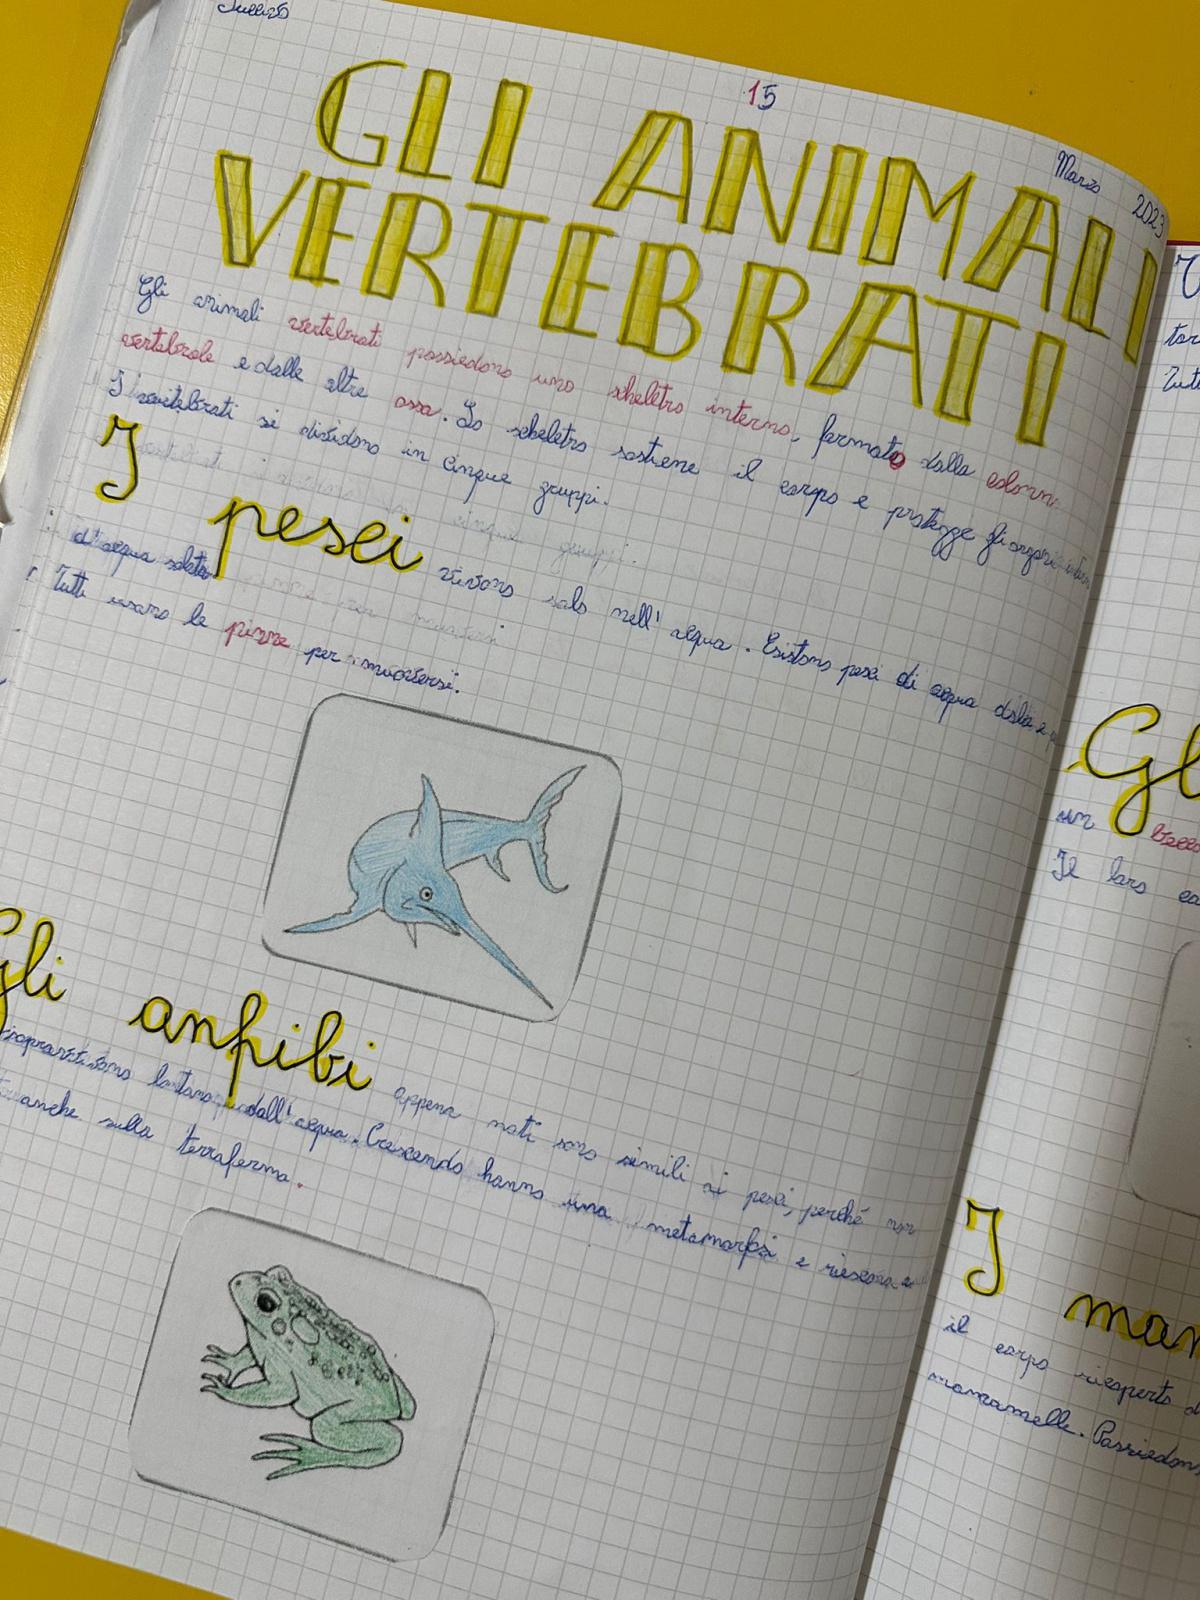 15 Marzo 2023
GLI ANIMALI
VERTEBRATI
Gli animali vertebrati possiedono uno scheletro interno, formato dalla colonn
vertebrale e dalle altre ossa. Lo scheletro sostiene il corpo e protegge gli organi
I vertebrati si dividono in cinque gruppi.
I pesci vivono solo nell'acqua. Esistono pesci di acqua dolce e
d'acqua salata
Tutti usano le pinne per muoversi.
Gli anfibi appena nati sono simili ai pesci, perché non
sopravvivono lontano dall'acqua. Crescendo hanno una metamorfosi e riescono a
anche sulla terraferma.
tor
Tutt
Gl
un becco
Il loro co
I mam
il corpo ricoperto d
mammelle. Possiedono